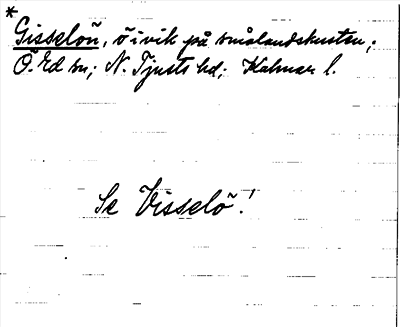 *
Gisselön, ö i vik på smålandskusten;
Ö. Ed sn; N. Tjusts hd; Kalmar l.
Se Visselö!